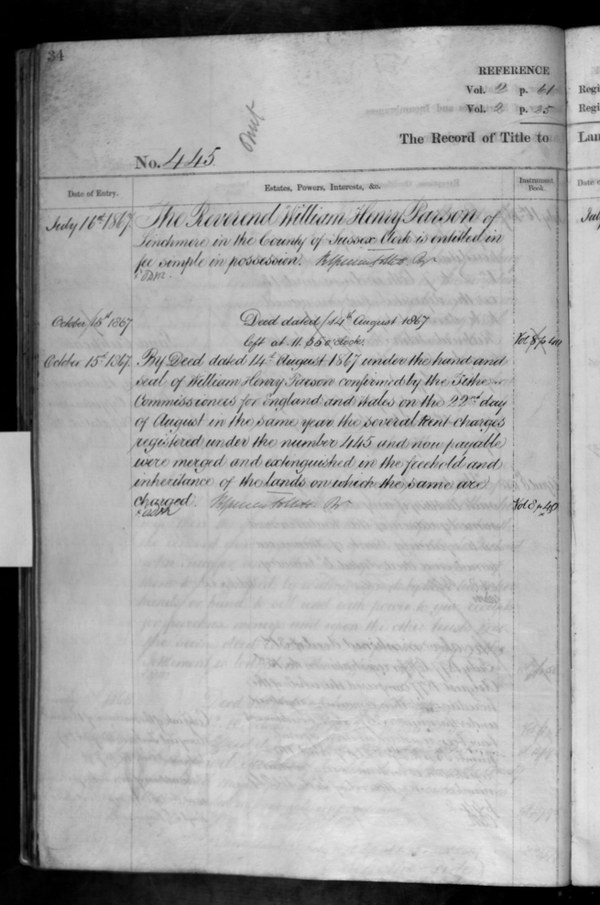 34
REFERENCE
Vol. 2 p. 61 Regi
Vol. 2 p. 35 Regi
The Record of Title to Lan
No. 445
Date of Entry. Estates, Powers, Interests, &c. Instrument Book. Date o
July 16th 1867 The Reverend William Henry Parson of July
Lynchmere in the County of Sussex Clerk is entitled in
fee simple in possession.
October 15th 1867 Deed dated 14th August 1867
Left at 11.55 o'clock. Vol 8 p 401
October 15th 1867 By Deed dated 14th August 1867 under the hand and
seal of William Henry Parson confirmed by the Tithe
Commissioners for England and Wales on the 22nd day
of August in the same year the several Rent charges
registered under the number 445 and now payable
were merged and extinguished in the freehold and
inheritance of the lands on which the same are
charged Vol 8 p